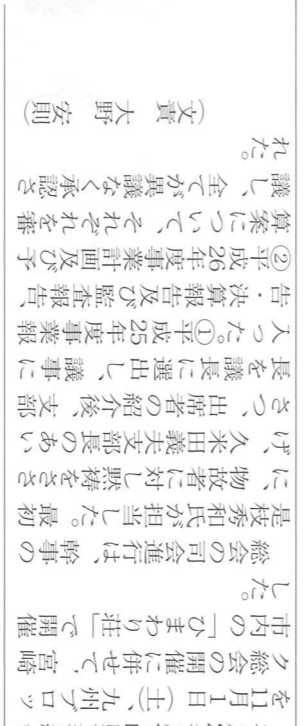 を11月1日（土）、九州ブロッ
ク総会の開催に併せて、宮崎
市内の「ひまわり荘」で開催
した。
　総会の司会進行は、幹事の
是枝秀和氏が担当した。最初
に、物故者に対し黙祷をささ
げ、久米田義夫支部長のあい
さつ、出席者の紹介後、支部
長を議長に選出し、議事に
入った。①平成25年度事業報
告・決算報告及び監査報告、
②平成26年度事業計画及び予
算案について、それぞれを審
議し、全てが異議なく承認さ
れた。
（文責　大野　安則）